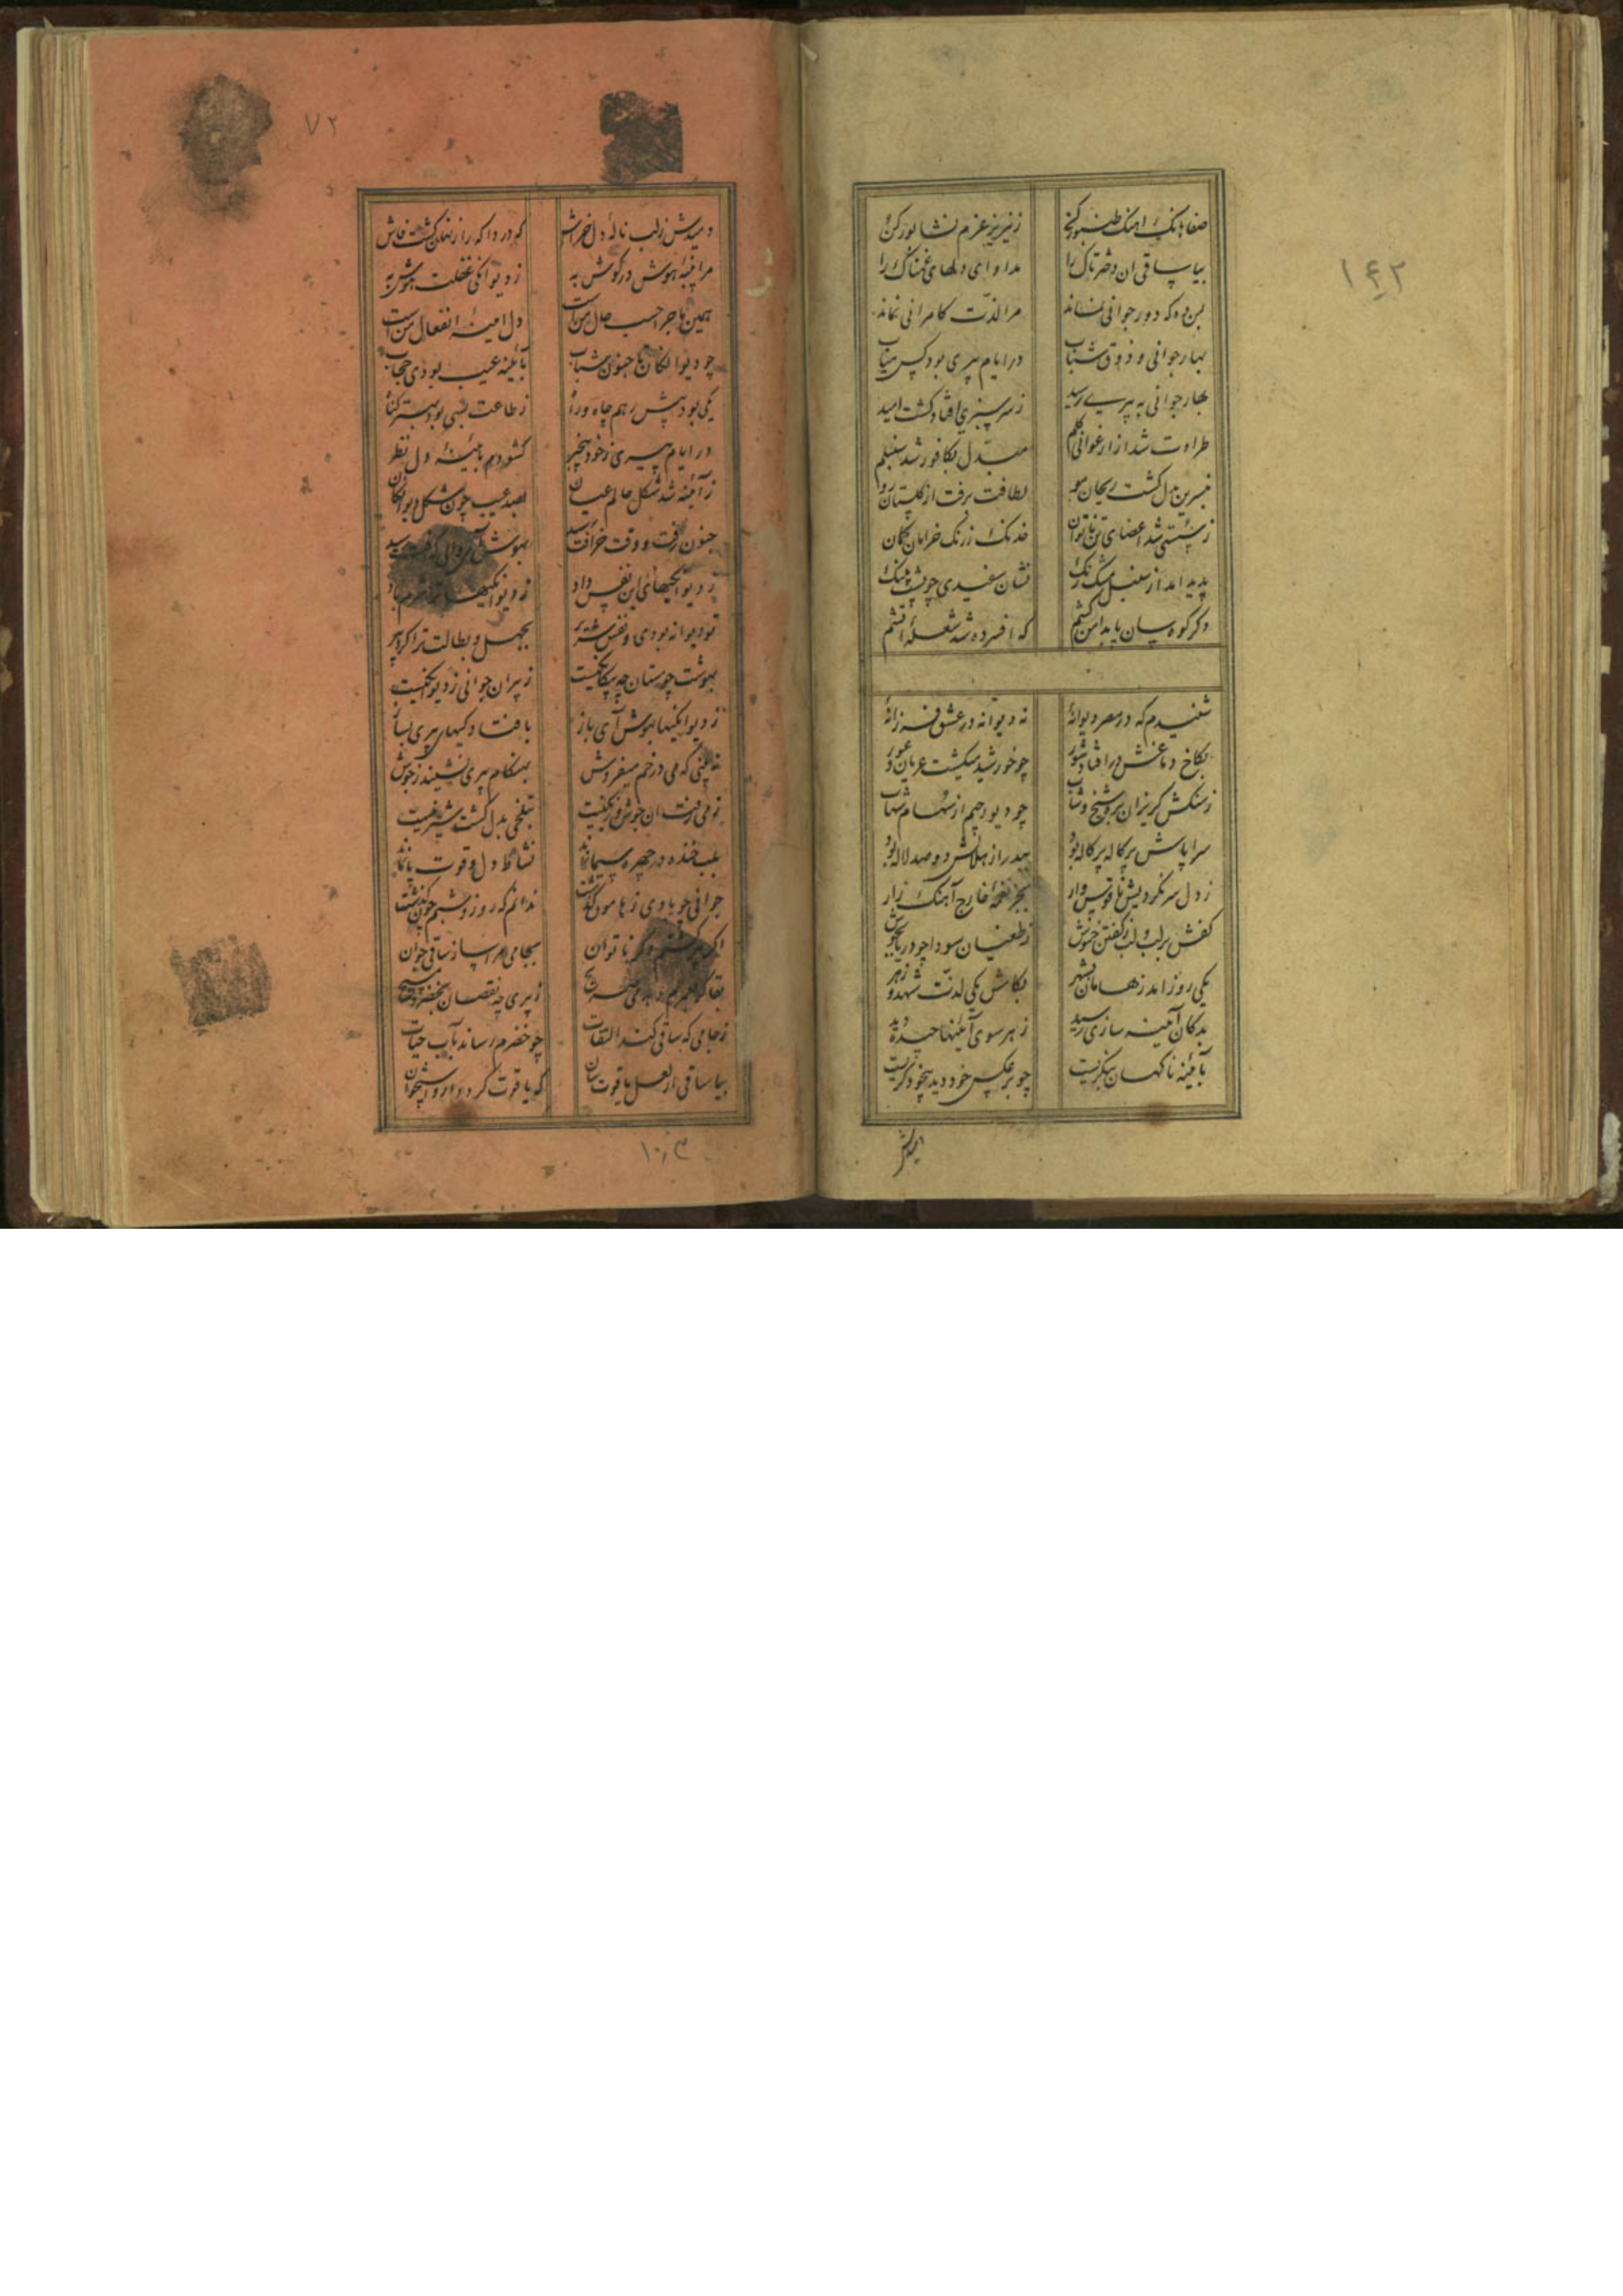 ۱۴۲
صفاهانک آهنک طنبور کن ز نیریز عزم نشابور کن
بیا ساقی ان دختر تاک را مداوای دلهای غمناک را
بمن ده که دور جوانی نماند مرا لذت کامرانی نماند
بهار جوانی و ذوق شباب در ایام پیری بود
بهار جوانی به پیری رسید ز سرسبزی افتاد کشت امید
طراوت شد از ارغوانی کلم مبدل بکافور شد سنبلم
بنسرین بدل کشت ریحان مو لطافت برفت از کلستان رو
ز سستی شد اعضای تن ناتوان خدنک ز رنک خرامان کمان
پدید امد از سنبل مشک رنک نشان سفیدی چو پشت پلنک
دکر کوه سان پا بدامن کشم که افسرده شد شعله آتشم
شنیدم که در مصر دیوانهٔ نه دیوانه در عشق فرزانهٔ
بکاخ دماغش در افتاد شور چو خورشید میکشت عریان و عور
ز سنکش کریزان بدو شیخ و شاب چو دیو رجیم از سهام شهاب
سراپاش پرکاله پرکاله بود بهدر از هلالش دو صد لاله بود
ز دل سر نکردیش ناقوس وار بجز نغمهٔ خارج آهنک زار
کفش بر لب و لب ز کفتن خموش ز طغیان سودا چو دریا بجوش
یکی روز امد ز هامان بشهر بکامش یکی لذت شهد و زهر
بدکان آینه سازی رسید ز هر سوی آیینها چیده دید
بآئینه ناکهان بنکریست چو بر عکس خود دید بیخود کریست
دمیدش
۷۲
دمیدش ز لب نالهٔ دلخراش که دردا که راز نهان کشت فاش
مرا پنبهٔ هوش در کوش به ز دیوانکی غفلت هوش به
همین ماجرا حسب حال من است دل امینهٔ انفعال من است
چو دیوانکان تا جنون شباب بآئینه عیب بودی حجاب
یکی بود پیش رهم چاه و راه ز طاعت بسی بود بهتر کناه
در ایام پیری ز خود بیخبر کشودم بآئینهٔ دل نظر
ز آئینه شد شکل حالم عیان بصد عیب چون شکل دیوانکان
جنون رفت و وقت خرافت رسید بهوش آی
ز دیوانکیهای این نفس داد ز دیوانکیها
تو دیوانه بودی و نفس شریر بجهل و بطالت ترا کرد پیر
بهوشت چو مستان چه بیکانکیست ز پیران جوانی ز دیوانکیست
ز دیوانکیها بهوش آی باز بافتادکیهای پیری بساز
نه بینی که می در خم میفروش بهنکام پیری نشیند ز جوش
ز می رفت ان جوش و رنکی که نیست بتلخی بدل کشت
بلب خنده در چهره سیما نماند نشاط دل و قوت پا نماند
جوانی چو بادی ز هامون کذشت ندانم که روز و شبم چون کذشت
اکر پیر کشتم وکر ناتوان بجامی مرا ساز ساقی جوان
ز پیری چه نقصان بخضر و مسیح
ز جامی که ساقی کند التفات چو خضرم رساند بآب حیات
بیا ساقی از لعل یاقوت سان که یاقوت کردد
۱۰۳